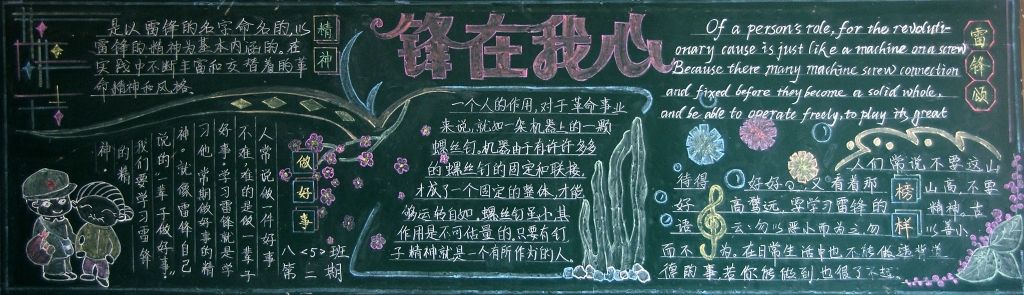 是以雷锋的名字命名的,以
雷锋的精神为基本内涵的,在
实践中不断丰富和发着的革
命精神和风格。
精
神
锋在我心
Of a person's role, for the revoluti-
onary cause is just like a machine on a screw
Because there many machine screw connection
and fixed before they become a solid whole,
and be able to operate freely, to play its great
雷
锋
颂
人常说做一件好事
不难难的是做一辈子
好事,学习雷锋就是学
习他,常期做好事的精
神。就像雷锋自己
说的:"一辈子做好事"
我们要学习雷锋
的精
神。
做
好
事
八<5>班
第二期
一个人的作用,对于革命事业
来说,就如一架机器上的一颗
螺丝钉。机器由于有许许多多
的螺丝钉的固定和联接,
才成了一个固定的整体,才能
够运的自如,螺丝钉虽小,其
作用是不可估量的,只要有钉
子精神就是一个有所作为的人。
人们常说不要这山
待得好好 又看着那山高,不要
好高骛远,要学习雷锋的精神。古
语云:勿以恶小而为之勿以善小
而不为。在日常生活中也不能做违背道
德的事若你能做到也很了不起。
榜
样